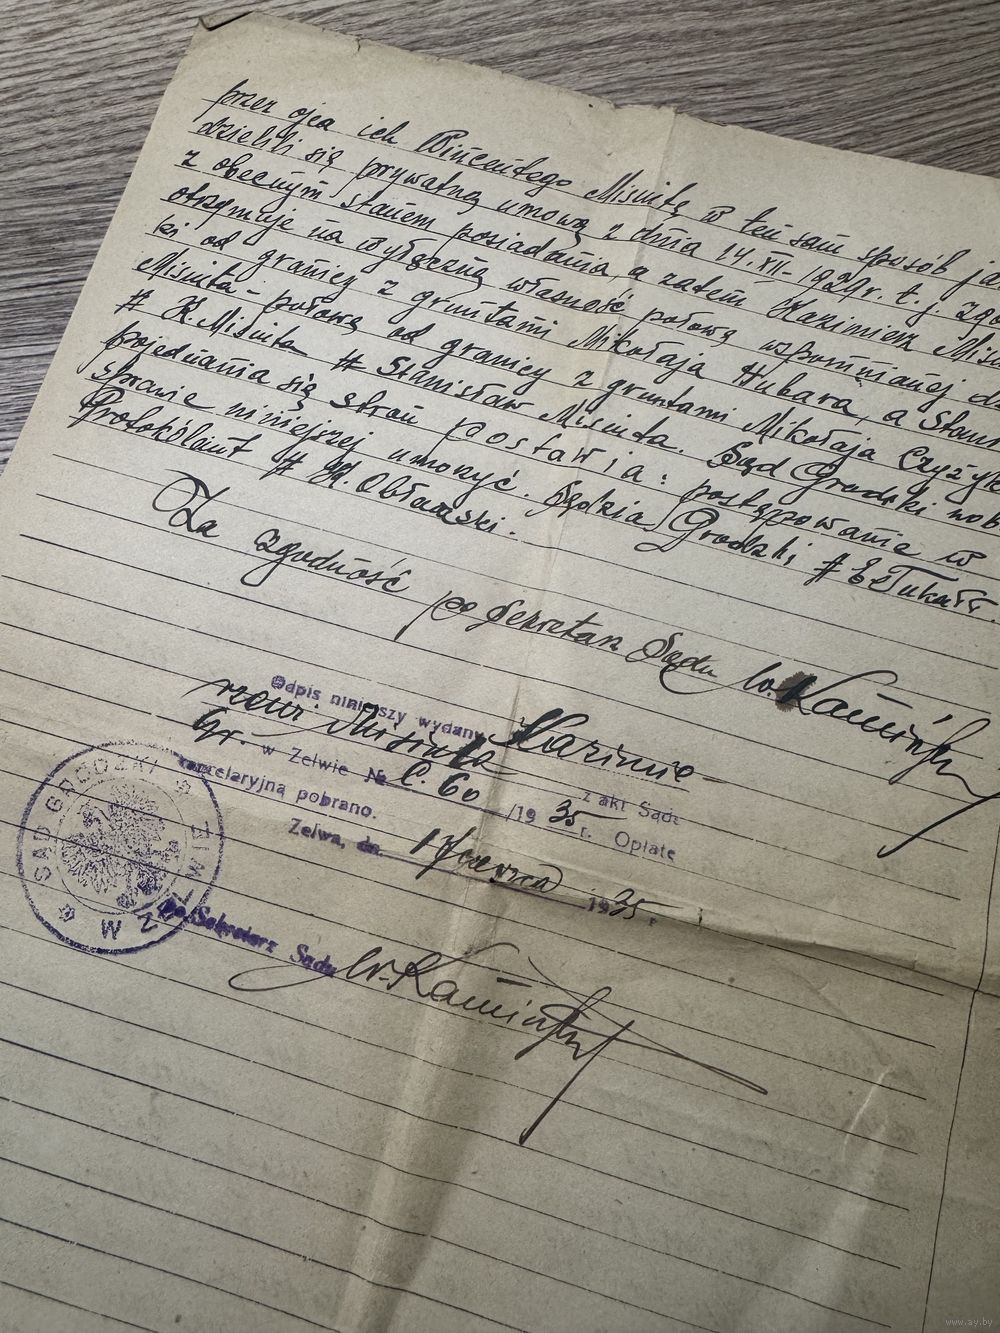 przez ojca ich Wincentego Misiutę w ten sam sposób ja
dzielili się prywatną umową z dnia 14.XII-1929r. t. j. zgo
z obecnym stanem posiadania, a zatem Kazimierz Misiu
otrzymuje na wyłączną własność połowę wspomnianej dz
ki od granicy z gruntami Mikołaja Hubara, a Stani
Misiuta - połowę od granicy z gruntami Mikołaja Czyżyk
# K. Misiuta # Stanisław Misiuta. Sąd Grodzki wob
pojednania się stron postawia: postępowanie w
sprawie niniejszej umorzyć. Sędzia Grodzki #
Protokólant # H.
Za zgodność po Sekretarz Sądu W. Kamiński
Odpis niniejszy wydany Kazimie-
rzowi Misiuta z akt Sądu
Gr. w Zelwie № C. 60 /1935 r. Opłatę
kancelaryjną pobrano.
Zelwa, dn. 17 czerwca 1935 r
po Sekretarz Sądu W. Kamiński
SĄD GRODZKI W ZELWIE
www.ay.by